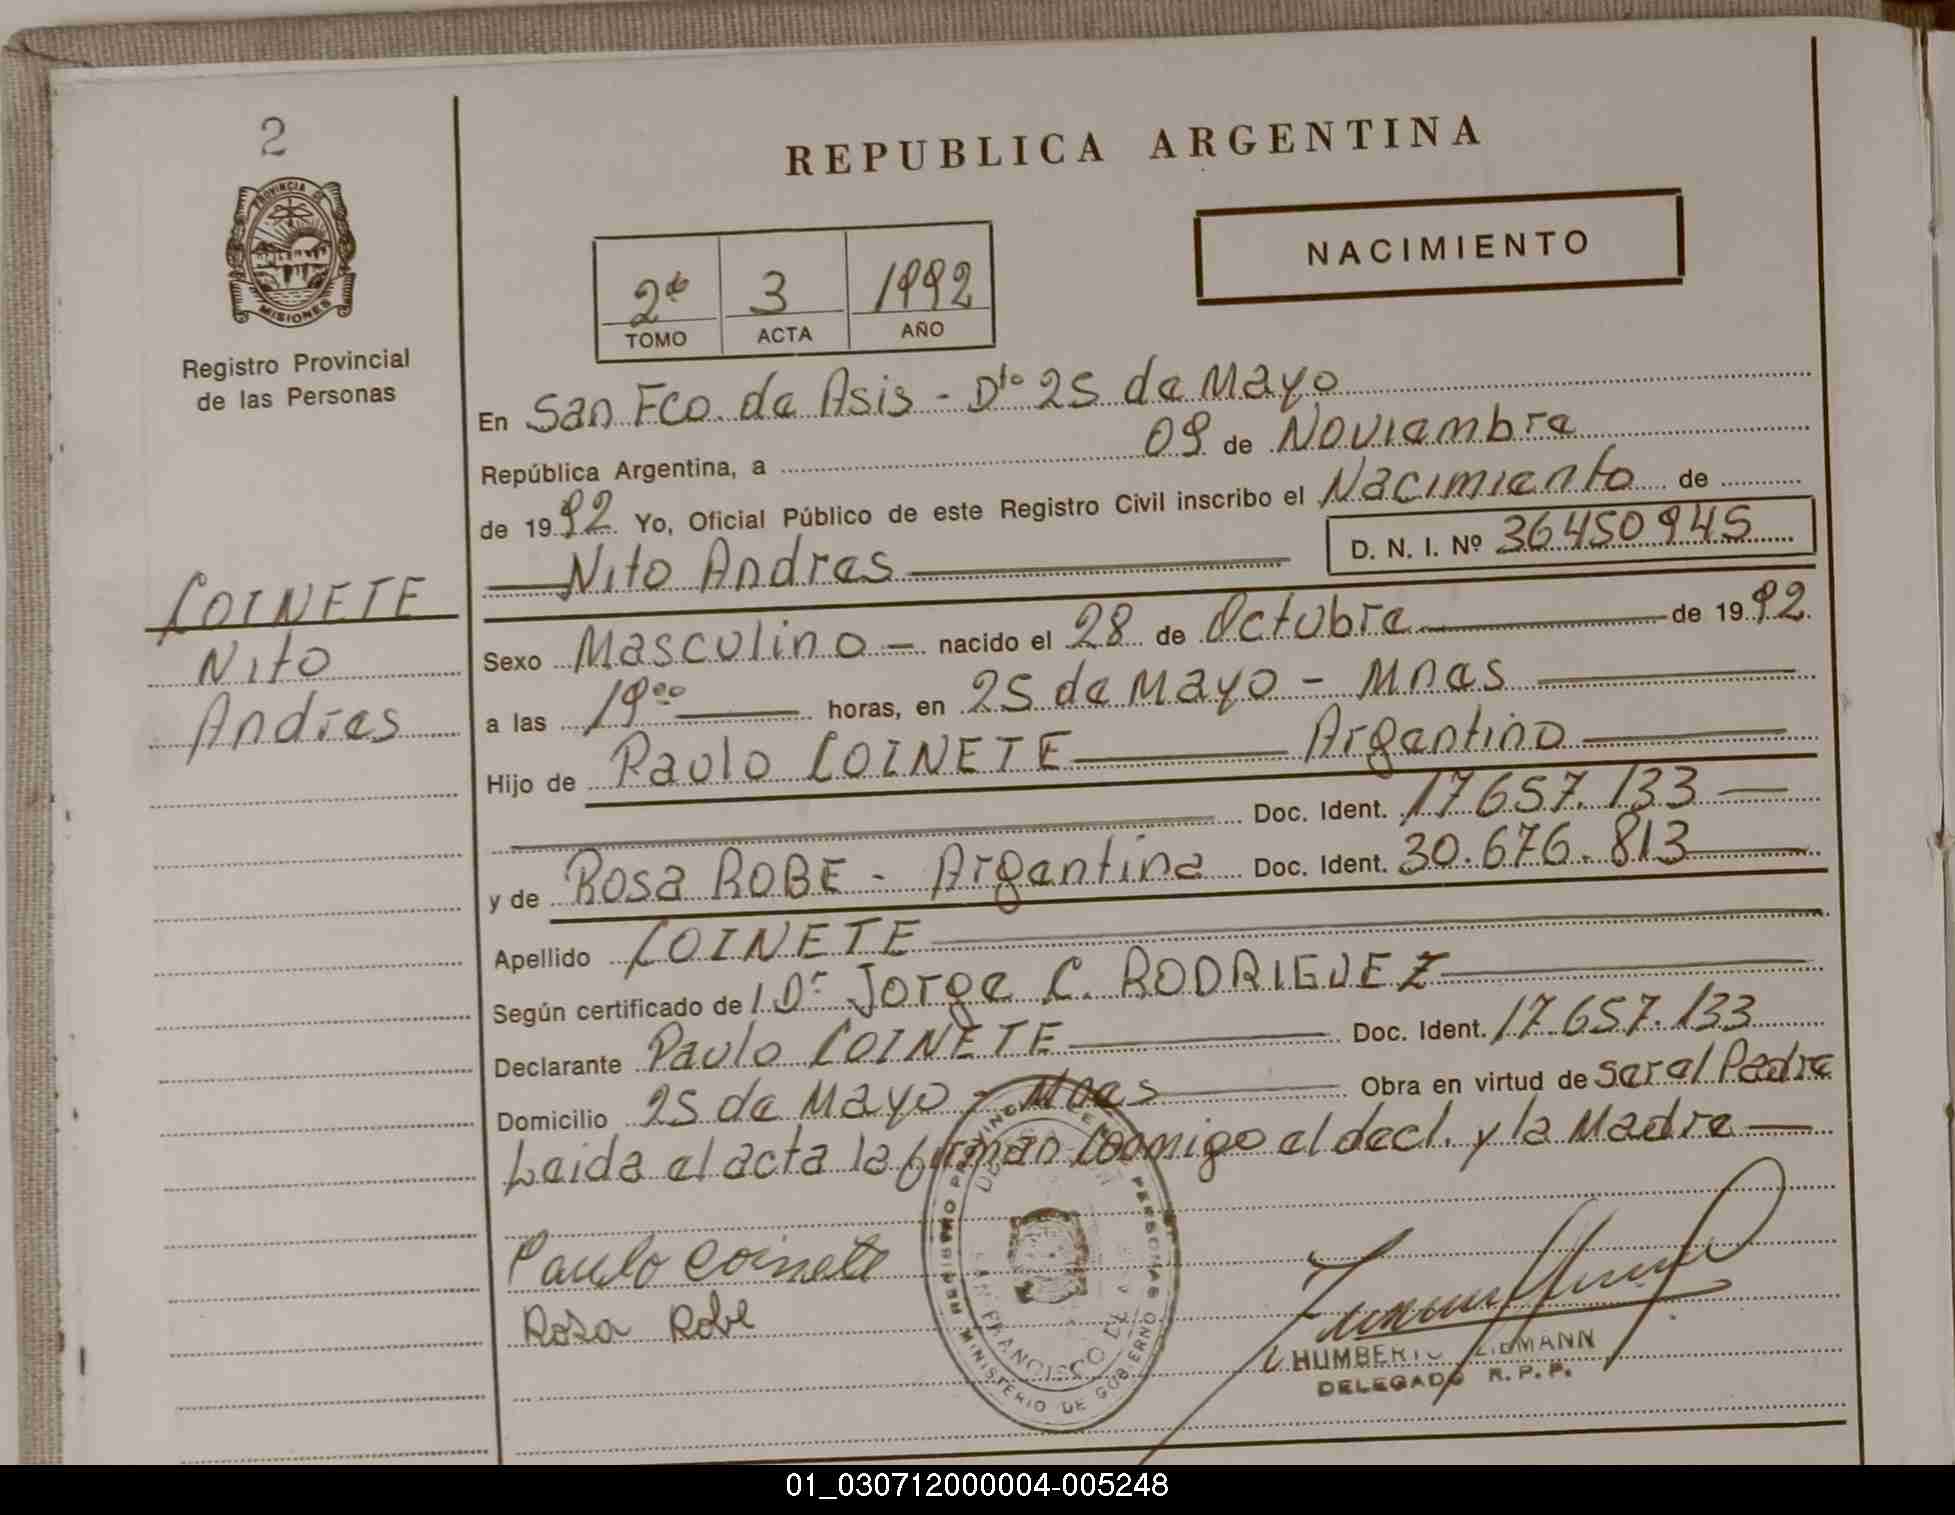 2
PROVINCIA DE
MISIONES
Registro Provincial
de las Personas
COINETE
Nito
Andres
REPUBLICA ARGENTINA
NACIMIENTO
2do 3 1992
TOMO ACTA AÑO
En San Fco. de Asis - Dto 25 de Mayo
República Argentina, a 09 de Noviembre
de 1992 Yo, Oficial Público de este Registro Civil inscribo el Nacimiento de
Nito Andres D. N. I. Nº 36450945
Sexo Masculino - nacido el 28 de Octubre de 1992.
a las 19oo horas, en 25 de Mayo - Mnes
Hijo de Paulo COINETE Argentino
Doc. Ident. 17657.133
y de Rosa ROBE - Argentina Doc. Ident. 30.676.813
Apellido COINETE
Según certificado de Dr Jorge C. RODRIGUEZ
Declarante Paulo COINETE Doc. Ident. 17.657.133
Domicilio 25 de Mayo - Mnes Obra en virtud de ser el Padre
Leida el acta la firman conmigo el decl. y la Madre
Paulo Coinete
Rosa Robe
MINISTERIO DE GOBIERNO
FRANCISCO DE
PERSONAS
HUMBERTO
DELEGADO R. P. P.
01_030712000004-005248